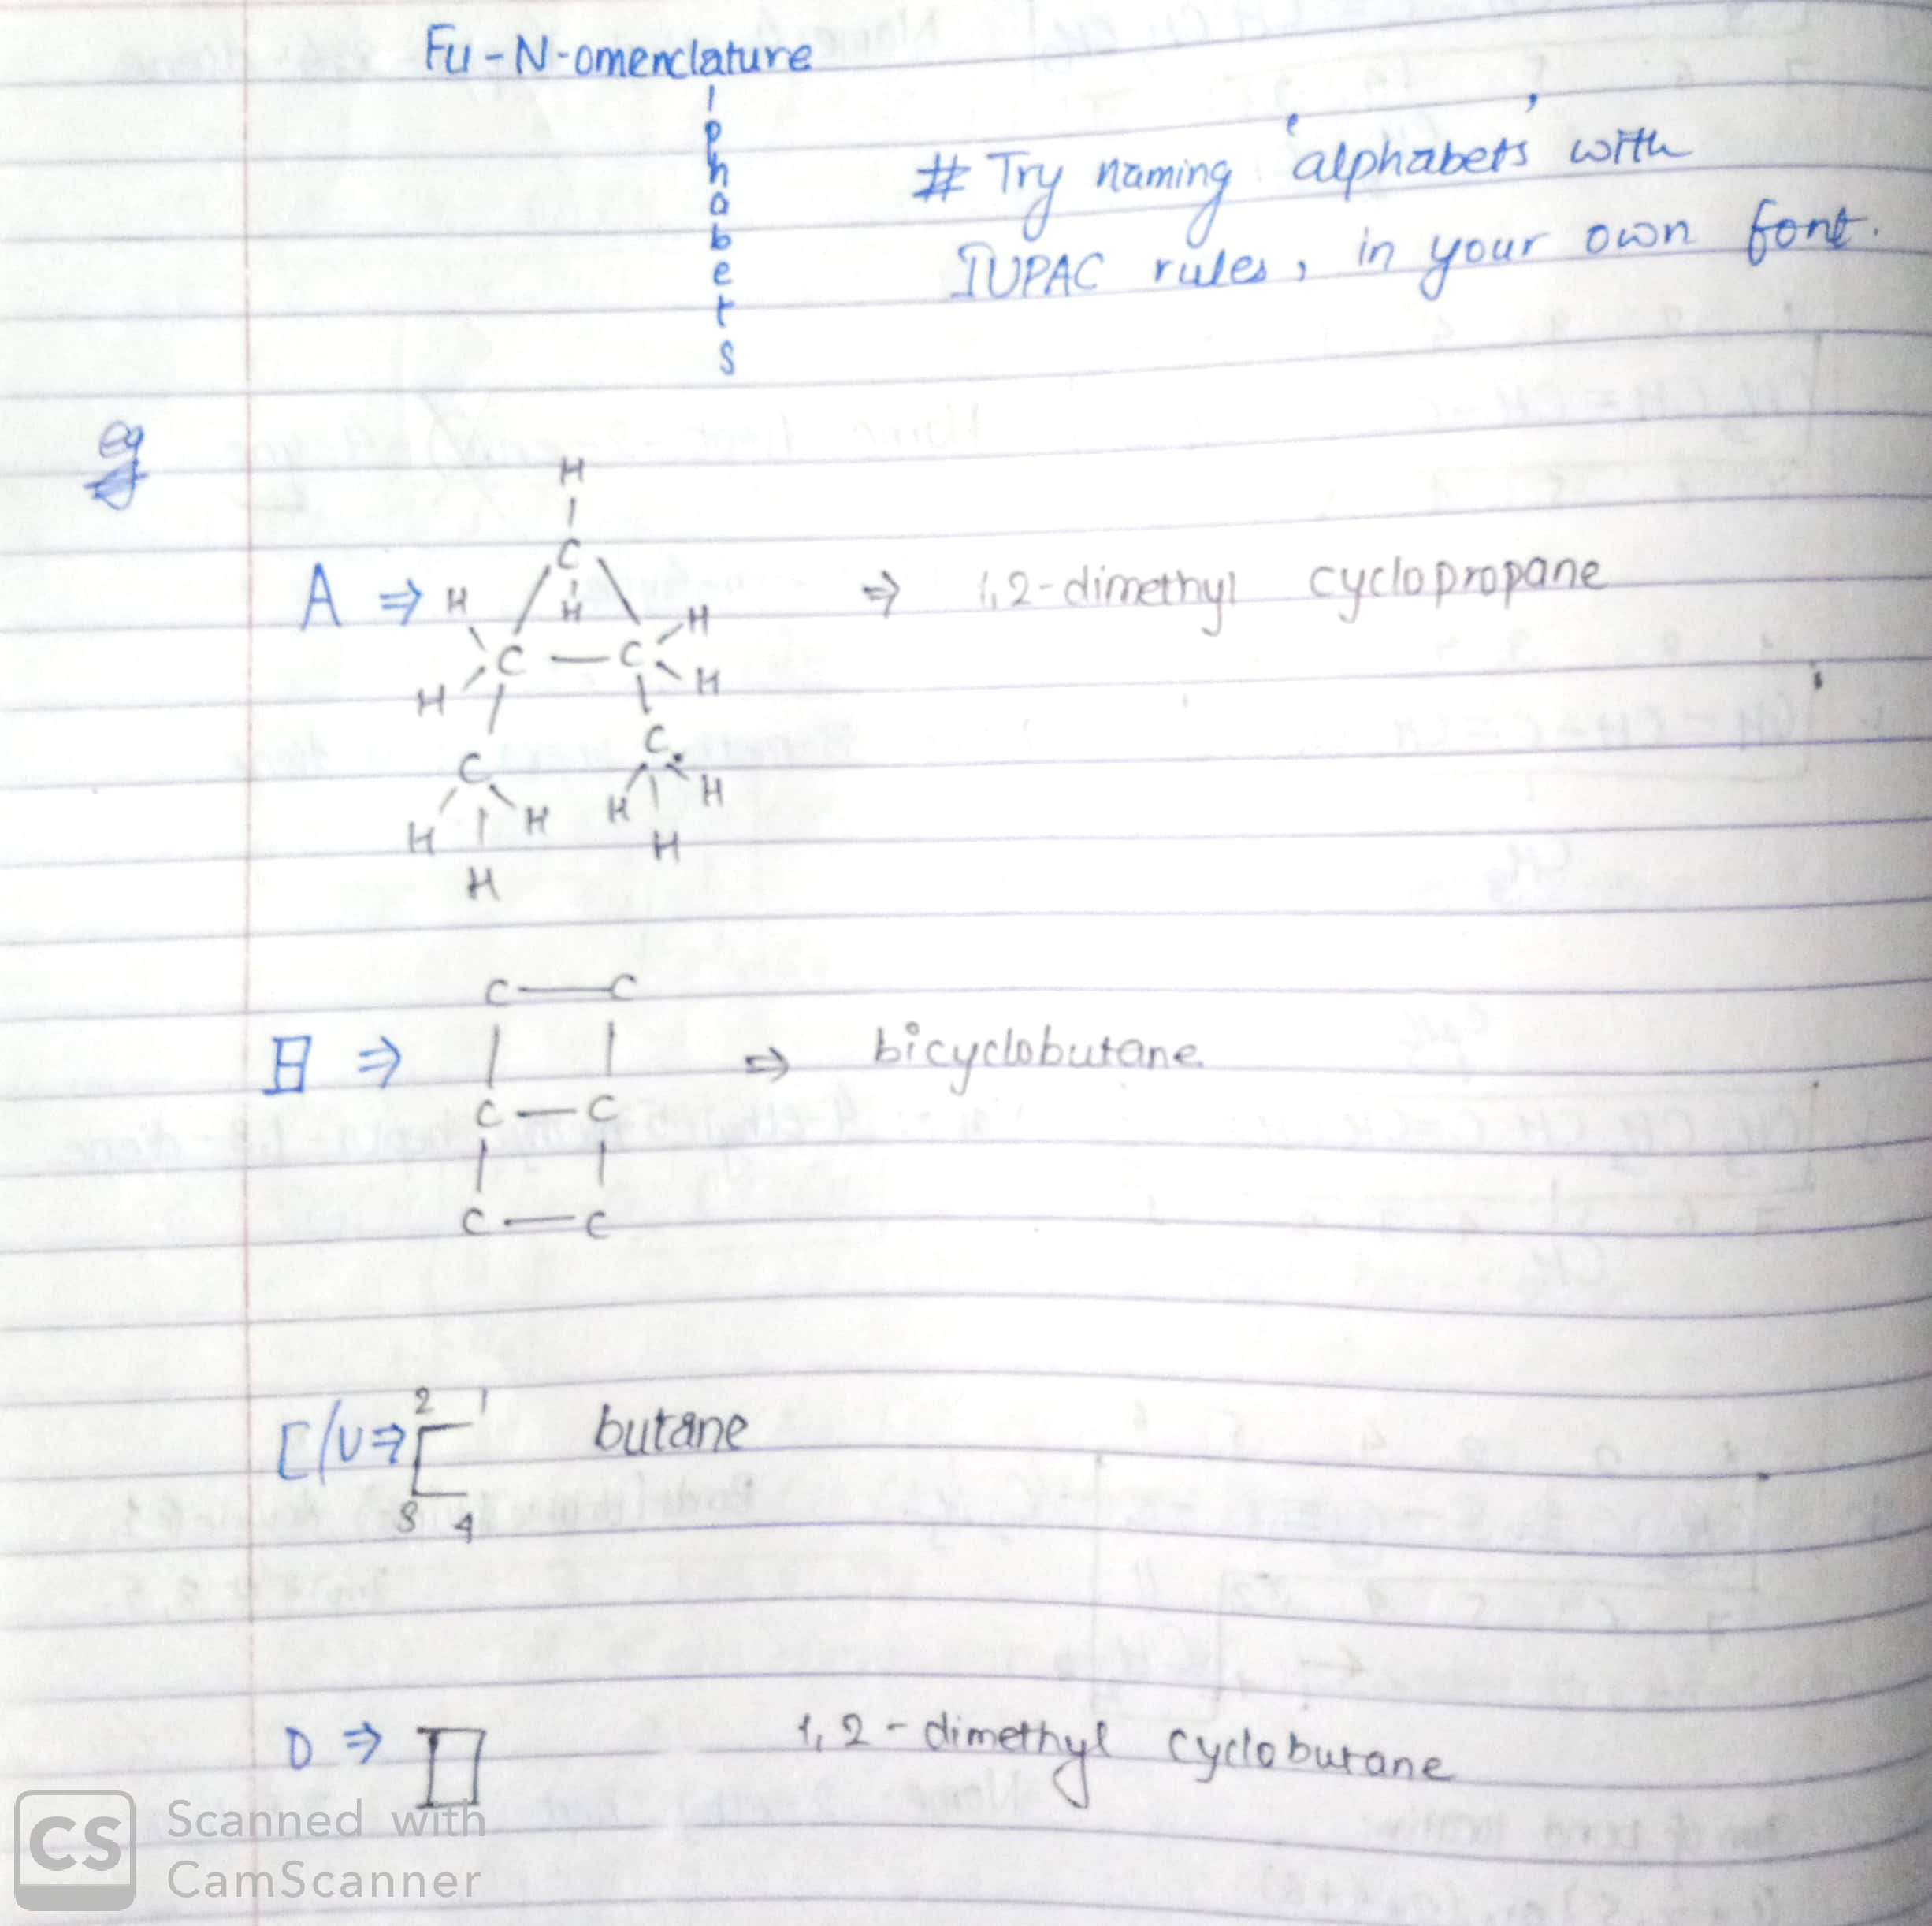 Fu-N-omenclature
l
p
h
a
b
e
t
s
# Try naming 'alphabets' with
IUPAC rules, in your own font.
eg
H
C
A ⇒ H H H ⇒ 1,2-dimethyl cyclopropane
C — C
H H
C C
H H H H
H H
C — C
B ⇒ ⇒ bicyclobutane
C — C
C — C
2 1
C/U ⇒ butane
3 4
D ⇒ 1,2-dimethyl cyclobutane
CS Scanned with
CamScanner